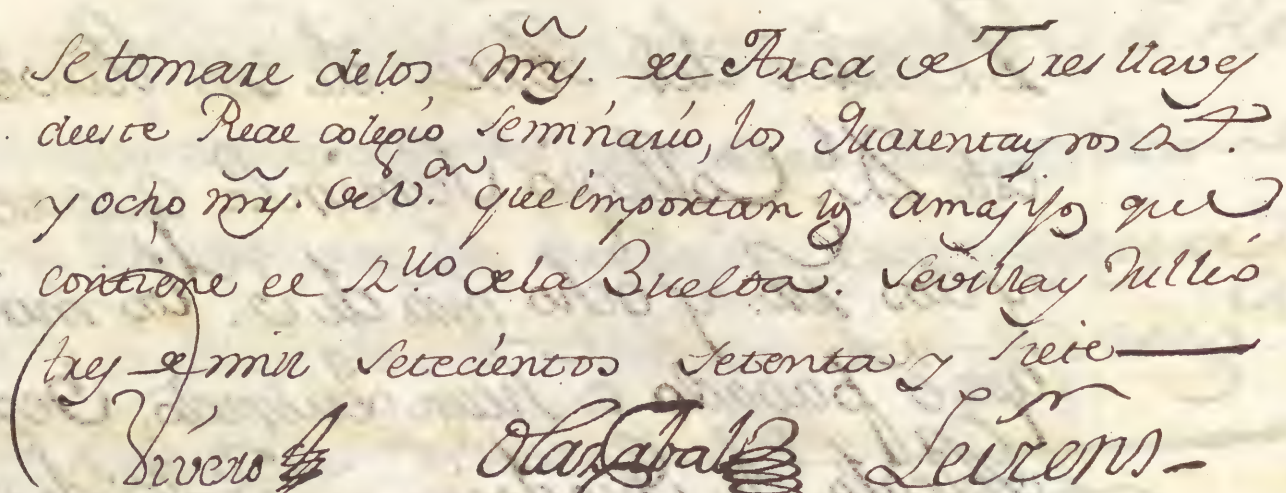 Se tomare delos mrs. del Arca de Tres llaves
deeste Real colegio Seminario, los Quarenta y dos Rs.
y ocho mrs. de Von. que importan los amasijos que
contiene el Rllo dela Buelta. Sevilla y Jullio
tres de mill Setecientos Setenta y Siete
Vivero Olazabal Leirens